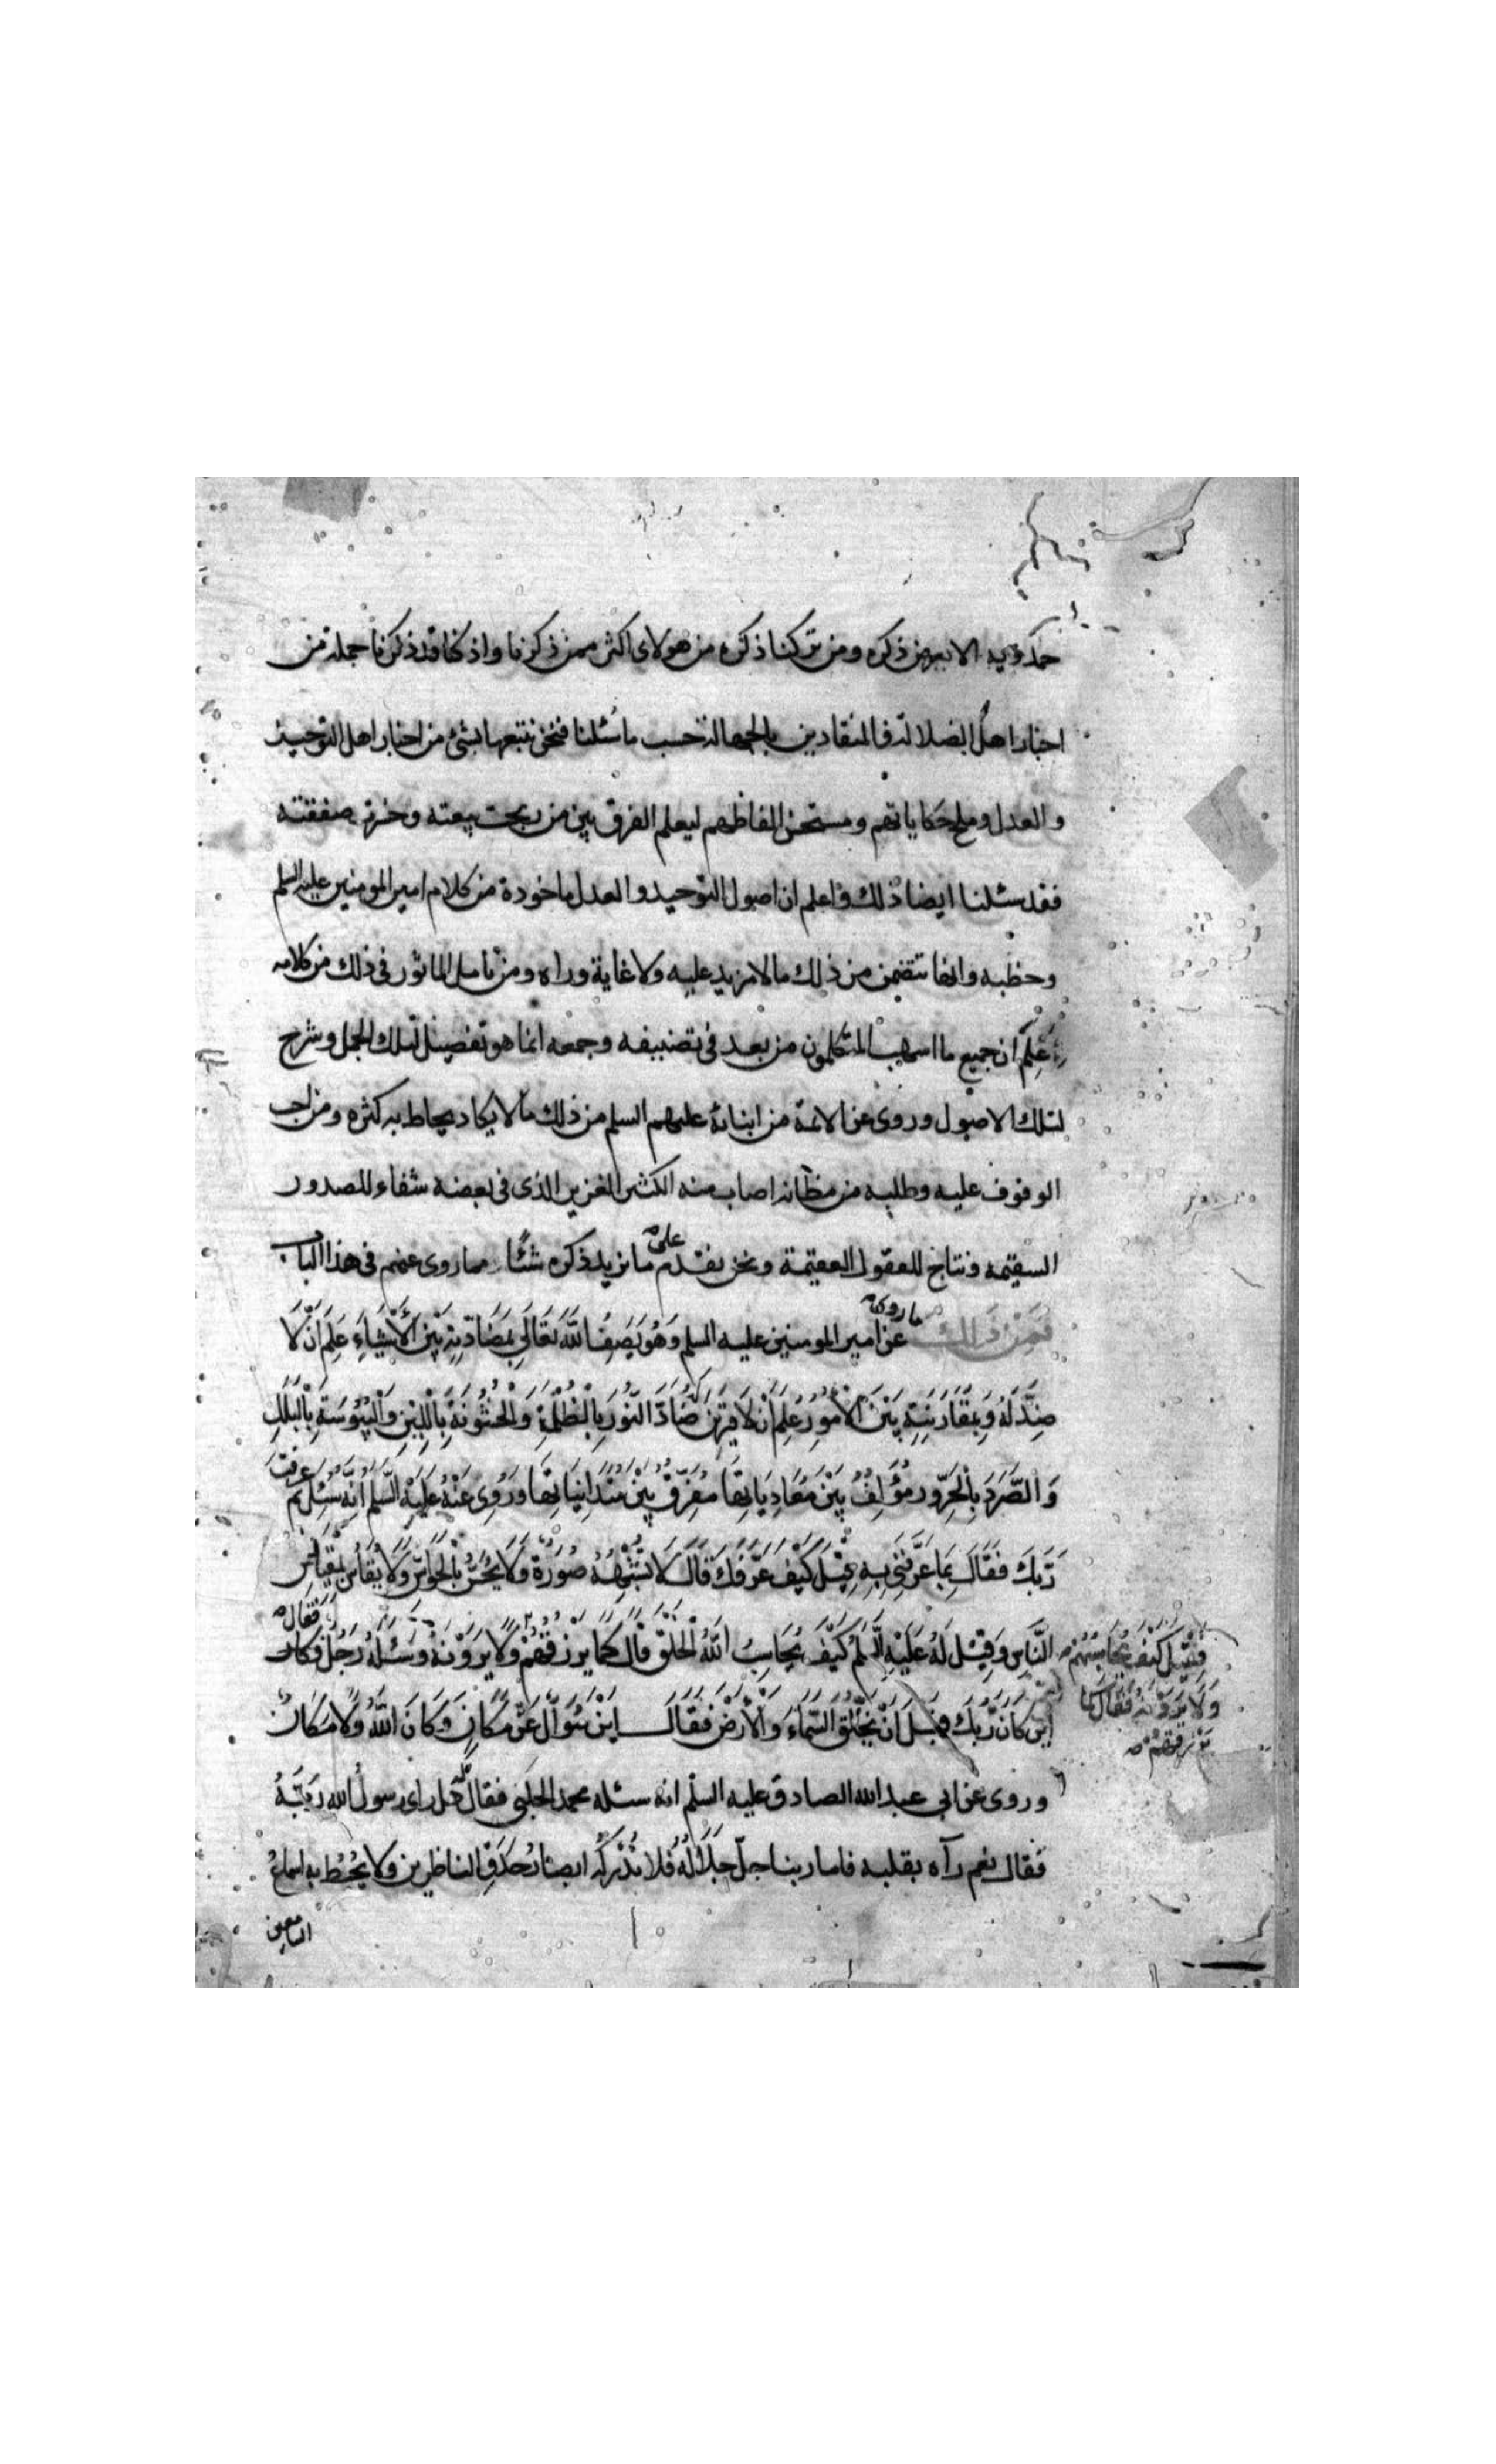 ذكره ومن تركنا ذكره من هولاى اكثر ممن ذكرنا واذ كنا قد ذكرنا جملة من
اخبار اهل الضلالة والمنقادين بالجهالة حسب ما سُئلنا فنحن نتبعها بشئ من اخبار اهل التوحيد
والعدل وملح حكاياتهم ومستحسن الفاظهم ليعلم الفرق بين من ربحت بيعته وخسرت صفقته
فقد سئلنا ايضا ذلك واعلم ان اصول التوحيد والعدل ماخوذة من كلام امير المومنين عليه السلم
وخطبه وانها تتضمن من ذلك ما لا مزيد عليه ولا غاية وراه ومن تامل الماثور فى ذلك من كلامه
عَلِمَ ان جميع ما اسهب المتكلمون من بعد فى تصنيفه وجمعه انما هو تفصيل لتلك الجمل وشرح
لتلك الاصول وروى عن الائمة من ابنائه عليهم السلم من ذلك ما لا يكاد يحاط به كثره ومن احب
الوقوف عليه وطلبه من مظانه اصاب منه الكثير الغزير الذى فى بعضه شفاء للصدور
السقيمه ونتاج للعقول العقيمة ونحن نقدم على ما نريد ذكره شئًا مما روى عنهم فى هذا الباب
فَمِنْ ذَلك ما روى عن امير المومنين عليه السلم وَهُوَ يَصِفُ اللَّهَ تَعَالَى بِمَضَادَّتِهِ بَيْنَ الْأَشْيَاءِ عَلِمَ اَنْ لَا
ضِدَّ لَهُ وَبِمُقَارَنَتِهِ بَيْنَ الْأُمُورِ عُلِمَ اَنْ لَا قَرِينَ لَهُ ضَادَّ النُّورَ بِالظُّلْمَةِ وَالْخُشُونَةَ بِاللِّينِ وَالْيُبُوسَةِ بِالْبَلَلِ
وَالصَّرَدَ بِالْحَرُورِ مُؤَلِّفٌ بَيْنَ مُتَعَادِيَاتِهَا مُفَرِّقٌ بَيْنَ مُتَدَانِيَاتِهَا وَرُوِىَ عَنْهُ عَلَيْهِ السَّلَمُ اَنَّهُ سُئِلَ بِمَ عرفت
رَبَّكَ فَقَالَ بِمَا عَرَّفَنِى بِهِ قِيْلَ كَيْفَ عَرَّفَكَ قَالَ لَا تُشْبِهُهُ صُورَةٌ وَلَا يُحَسُّ بِالْحَوَاسِّ وَلَا يُقَاسُ بِقِيَاسِ
النَّاسِ وَقِيْلَ لَهُ عَلَيْهِ السَّلَمُ كَيْفَ يُحَاسِبُ اللَّهُ الْخَلْقَ قَالَ كَمَا يَرْزُقُهُمْ وَلَا يَرَوْنَهُ وَسَئَلَهُ رَجُلٌ فقال
فَقِيْلَ كَيْفَ يُحَاسِبُهُمْ
وَلَا يَرَوْنَهُ فَقَالَ كَمَا
يَرْزُقُهُمْ
اَيْنَ كَانَ رَبُّكَ قَبْلَ اَنْ يَخْلُقَ السَّمَاءَ وَالْأَرْضَ فَقَالَ اَيْنَ سُوَالٌ عَنْ مَكَانٍ وَكَانَ اللَّهُ وَلَا مَكَانَ
وروى عن ابى عبد الله الصادق عليه السلم انه سئله محمد الحلبى فقال له هل راى رسول الله رَبَّهُ
فقال نعم رآه بقلبه فاما ربنا جل جلاله فلا تُدْرِكُه ابصار حَدَقِ الناظرين ولا يُحيطُ به اسماعُ
السامعين